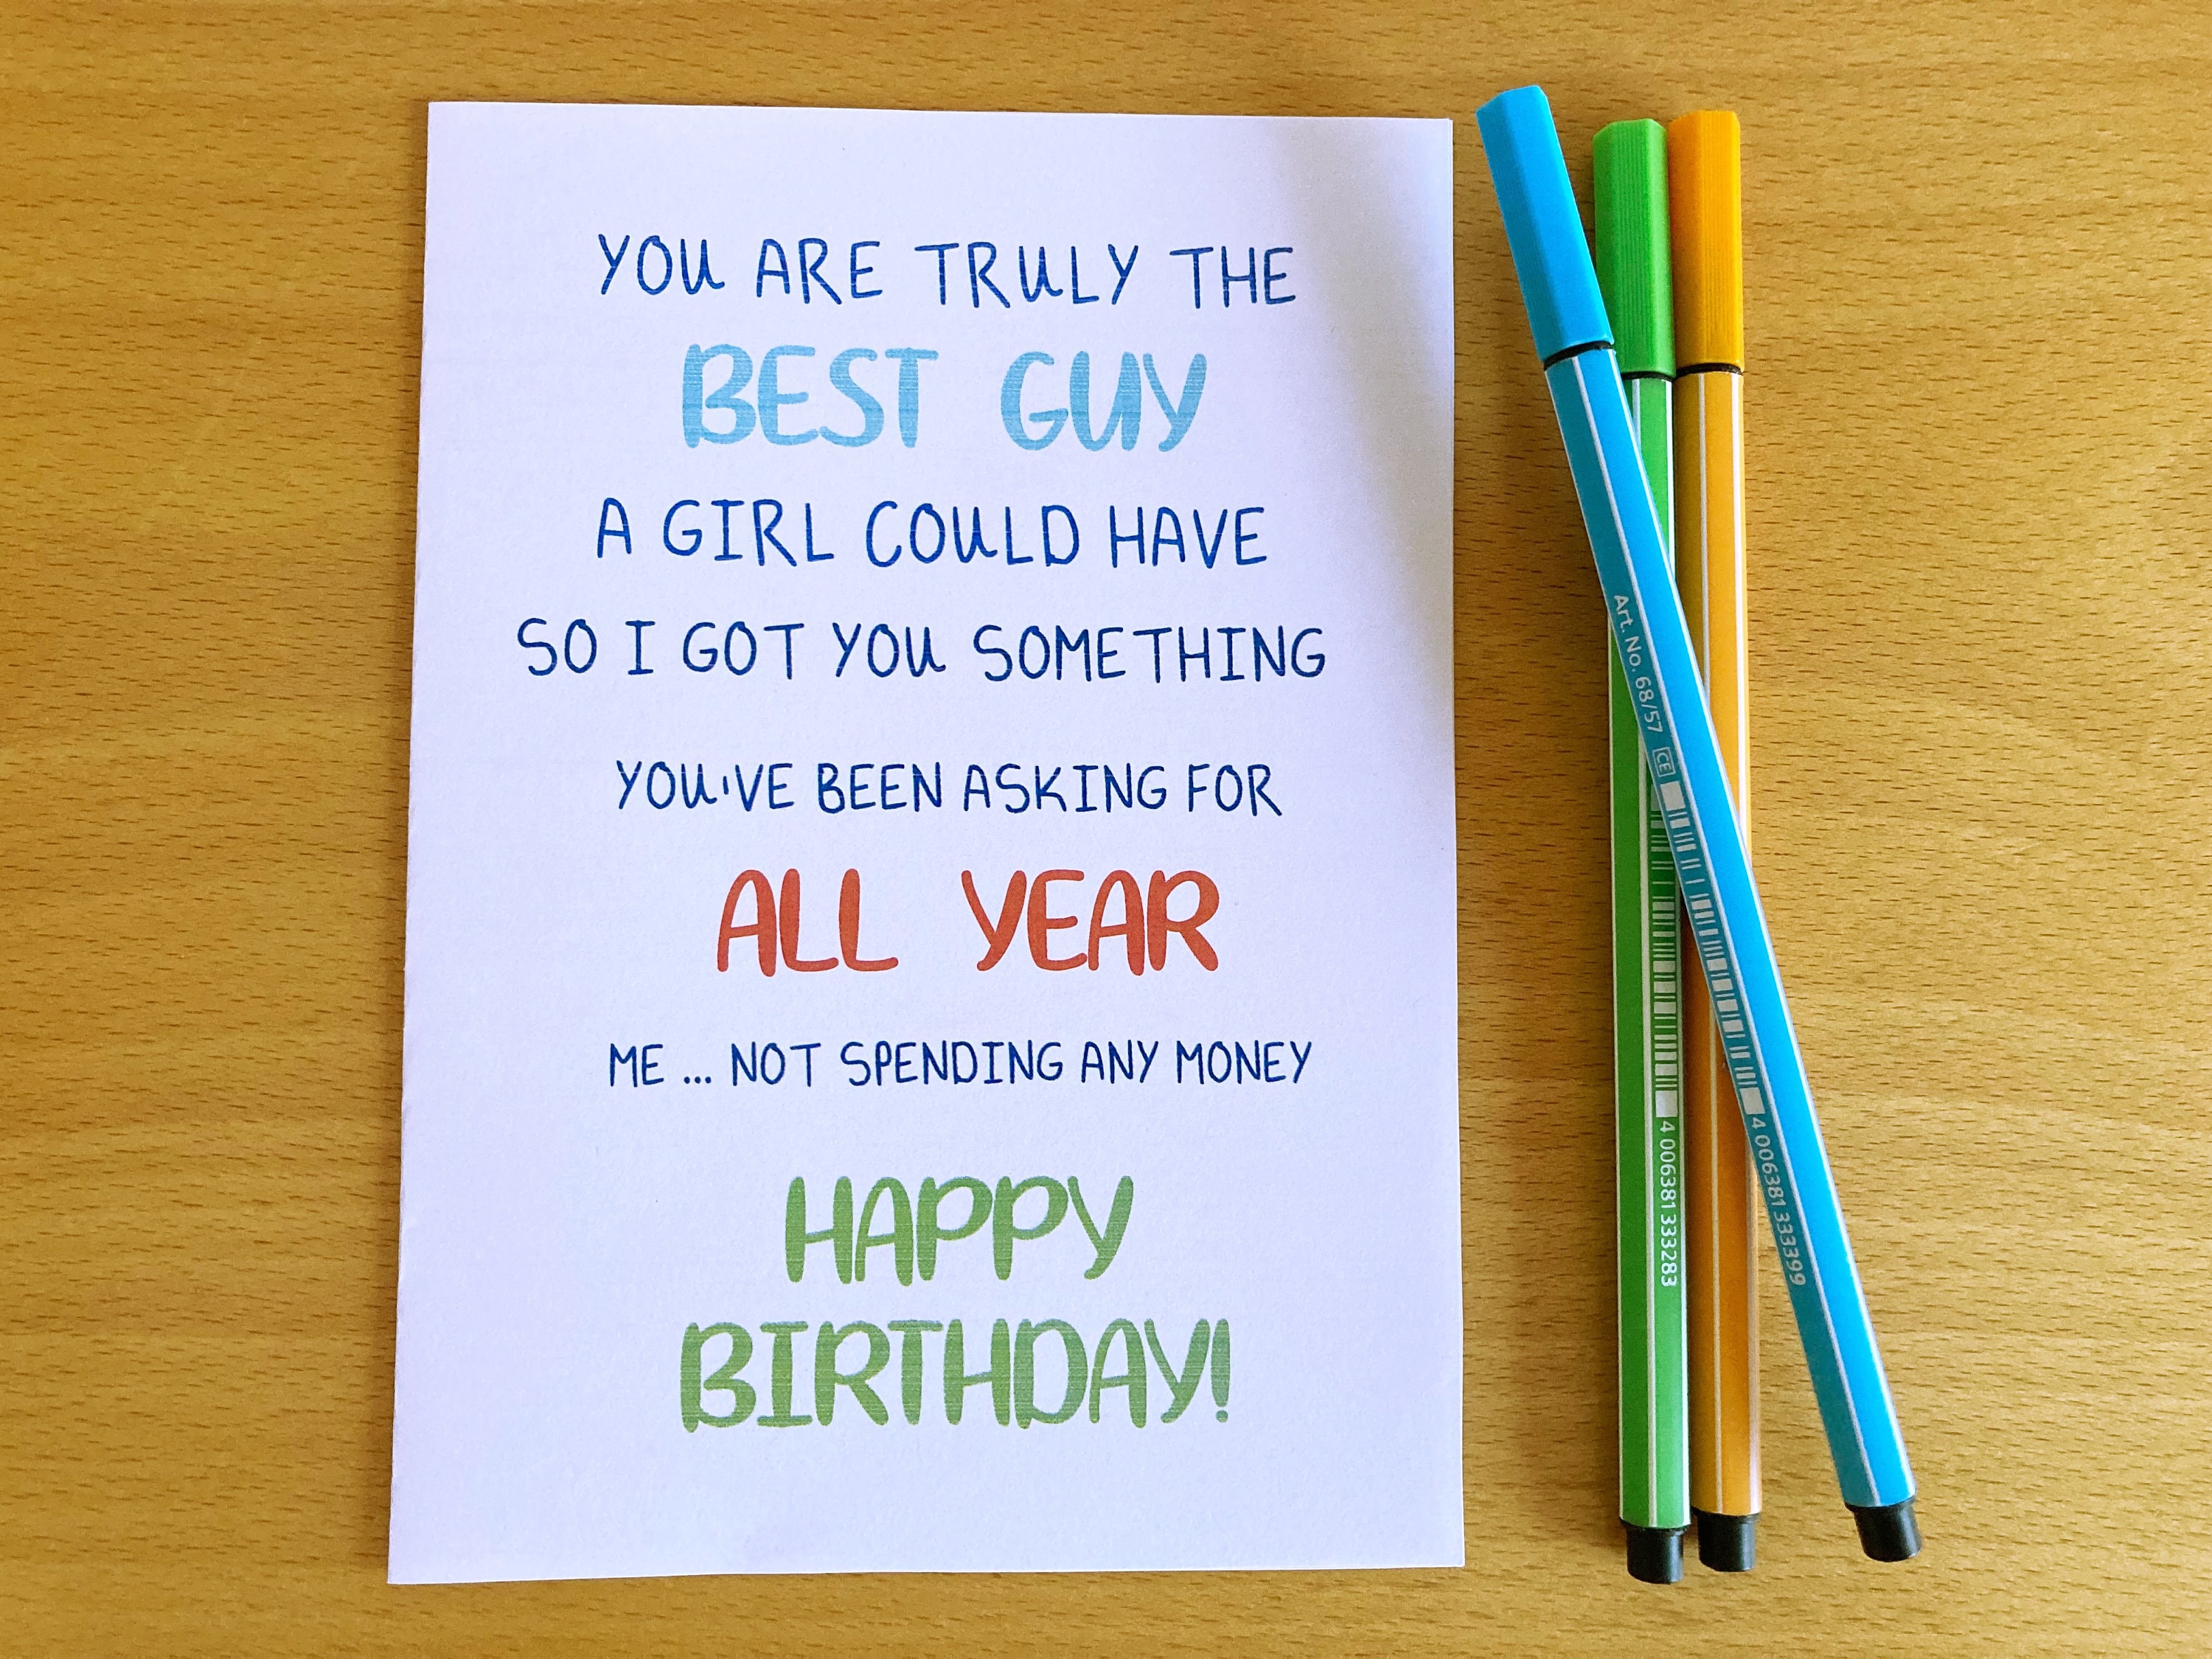 YOU ARE TRULY THE
BEST GUY
A GIRL COULD HAVE
SO I GOT YOU SOMETHING
YOU'VE BEEN ASKING FOR
ALL YEAR
ME ... NOT SPENDING ANY MONEY
HAPPY
BIRTHDAY!
4 006381 333283
Art. No. 68/57 CE 4 006381 333399